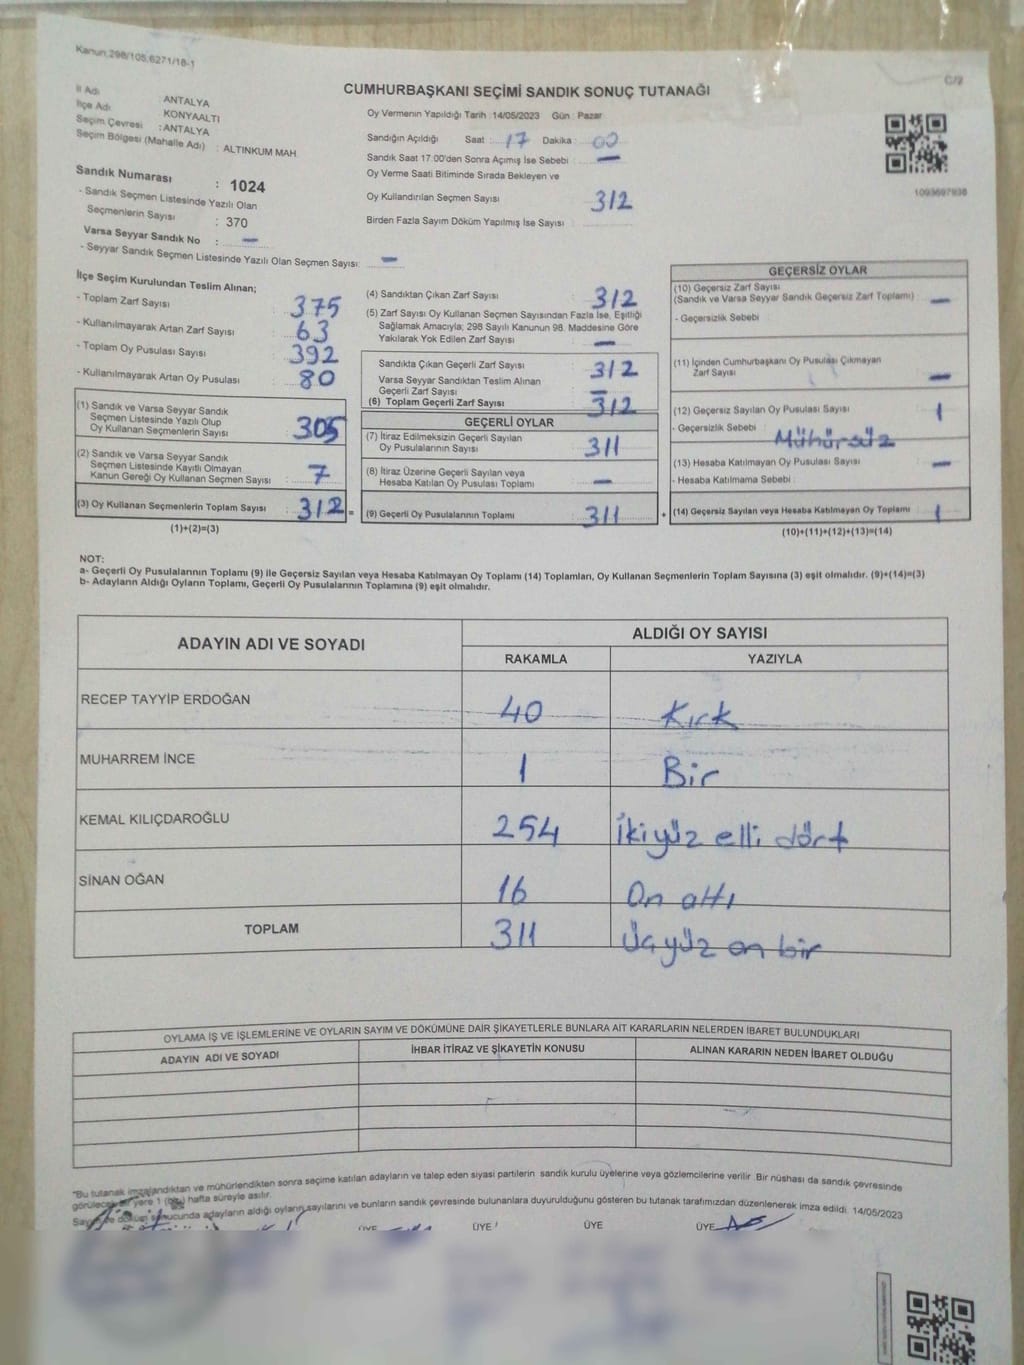 Kanun.298/105,6271/18-1
C/2
CUMHURBAŞKANI SEÇİMİ SANDIK SONUÇ TUTANAĞI
İl Adı : ANTALYA
İlçe Adı : KONYAALTI
Seçim Çevresi : ANTALYA
Seçim Bölgesi (Mahalle Adı) : ALTINKUM MAH.
Sandık Numarası : 1024
- Sandık Seçmen Listesinde Yazılı Olan
Seçmenlerin Sayısı : 370
Varsa Seyyar Sandık No : —
- Seyyar Sandık Seçmen Listesinde Yazılı Olan Seçmen Sayısı: —
Oy Vermenin Yapıldığı Tarih : 14/05/2023 Gün : Pazar
Sandığın Açıldığı Saat : 17 Dakika : 00
Sandık Saat 17:00'den Sonra Açımış İse Sebebi : —
Oy Verme Saati Bitiminde Sırada Bekleyen ve
Oy Kullandırılan Seçmen Sayısı : 312
Birden Fazla Sayım Döküm Yapılmış İse Sayısı :
1093697938
İlçe Seçim Kurulundan Teslim Alınan;
- Toplam Zarf Sayısı : 375
- Kullanılmayarak Artan Zarf Sayısı : 63
- Toplam Oy Pusulası Sayısı : 392
- Kullanılmayarak Artan Oy Pusulası : 80
(1) Sandık ve Varsa Seyyar Sandık
Seçmen Listesinde Yazılı Olup
Oy Kullanan Seçmenlerin Sayısı : 305
(2) Sandık ve Varsa Seyyar Sandık
Seçmen Listesinde Kayıtlı Olmayan
Kanun Gereği Oy Kullanan Seçmen Sayısı : 7
(3) Oy Kullanan Seçmenlerin Toplam Sayısı : 312 =
(1)+(2)=(3)
(4) Sandıktan Çıkan Zarf Sayısı : 312
(5) Zarf Sayısı Oy Kullanan Seçmen Sayısından Fazla İse, Eşitliği
Sağlamak Amacıyla; 298 Sayılı Kanunun 98. Maddesine Göre
Yakılarak Yok Edilen Zarf Sayısı : —
Sandıkta Çıkan Geçerli Zarf Sayısı : 312
Varsa Seyyar Sandıktan Teslim Alınan
Geçerli Zarf Sayısı : —
(6) Toplam Geçerli Zarf Sayısı : 312
GEÇERLİ OYLAR
(7) İtiraz Edilmeksizin Geçerli Sayılan
Oy Pusulalarının Sayısı : 311
(8) İtiraz Üzerine Geçerli Sayılan veya
Hesaba Katılan Oy Pusulası Toplamı : —
(9) Geçerli Oy Pusulalarının Toplamı : 311 +
GEÇERSİZ OYLAR
(10) Geçersiz Zarf Sayısı
(Sandık ve Varsa Seyyar Sandık Geçersiz Zarf Toplamı) : —
- Geçersizlik Sebebi :
(11) İçinden Cumhurbaşkanı Oy Pusulası Çıkmayan
Zarf Sayısı : —
(12) Geçersiz Sayılan Oy Pusulası Sayısı : 1
- Geçersizlik Sebebi : Mühürsüz
(13) Hesaba Katılmayan Oy Pusulası Sayısı : —
- Hesaba Katılmama Sebebi :
(14) Geçersiz Sayılan veya Hesaba Katılmayan Oy Toplamı : 1
(10)+(11)+(12)+(13)=(14)
NOT:
a- Geçerli Oy Pusulalarının Toplamı (9) ile Geçersiz Sayılan veya Hesaba Katılmayan Oy Toplamı (14) Toplamları, Oy Kullanan Seçmenlerin Toplam Sayısına (3) eşit olmalıdır. (9)+(14)=(3)
b- Adayların Aldığı Oyların Toplamı, Geçerli Oy Pusulalarının Toplamına (9) eşit olmalıdır.
ADAYIN ADI VE SOYADI
ALDIĞI OY SAYISI
RAKAMLA YAZIYLA
RECEP TAYYİP ERDOĞAN 40 Kırk
MUHARREM İNCE 1 Bir
KEMAL KILIÇDAROĞLU 254 İkiyüz elli dört
SİNAN OĞAN 16 On altı
TOPLAM 311 Üçyüz on bir
OYLAMA İŞ VE İŞLEMLERİNE VE OYLARIN SAYIM VE DÖKÜMÜNE DAİR ŞİKAYETLERLE BUNLARA AİT KARARLARIN NELERDEN İBARET BULUNDUKLARI
ADAYIN ADI VE SOYADI İHBAR İTİRAZ VE ŞİKAYETİN KONUSU ALINAN KARARIN NEDEN İBARET OLDUĞU
"Bu tutanak imzalandıktan ve mühürlendikten sonra seçime katılan adayların ve talep eden siyasi partilerin sandık kurulu üyelerine veya gözlemcilerine verilir. Bir nüshası da sandık çevresinde
görülecek bir yere 1 (bir) hafta süreyle asılır.
Sayım ve döküm sonucunda adayların aldığı oyların sayılarını ve bunların sandık çevresinde bulunanlara duyurulduğunu gösteren bu tutanak tarafımızdan düzenlenerek imza edildi. 14/05/2023
ÜYE ÜYE ÜYE ÜYE